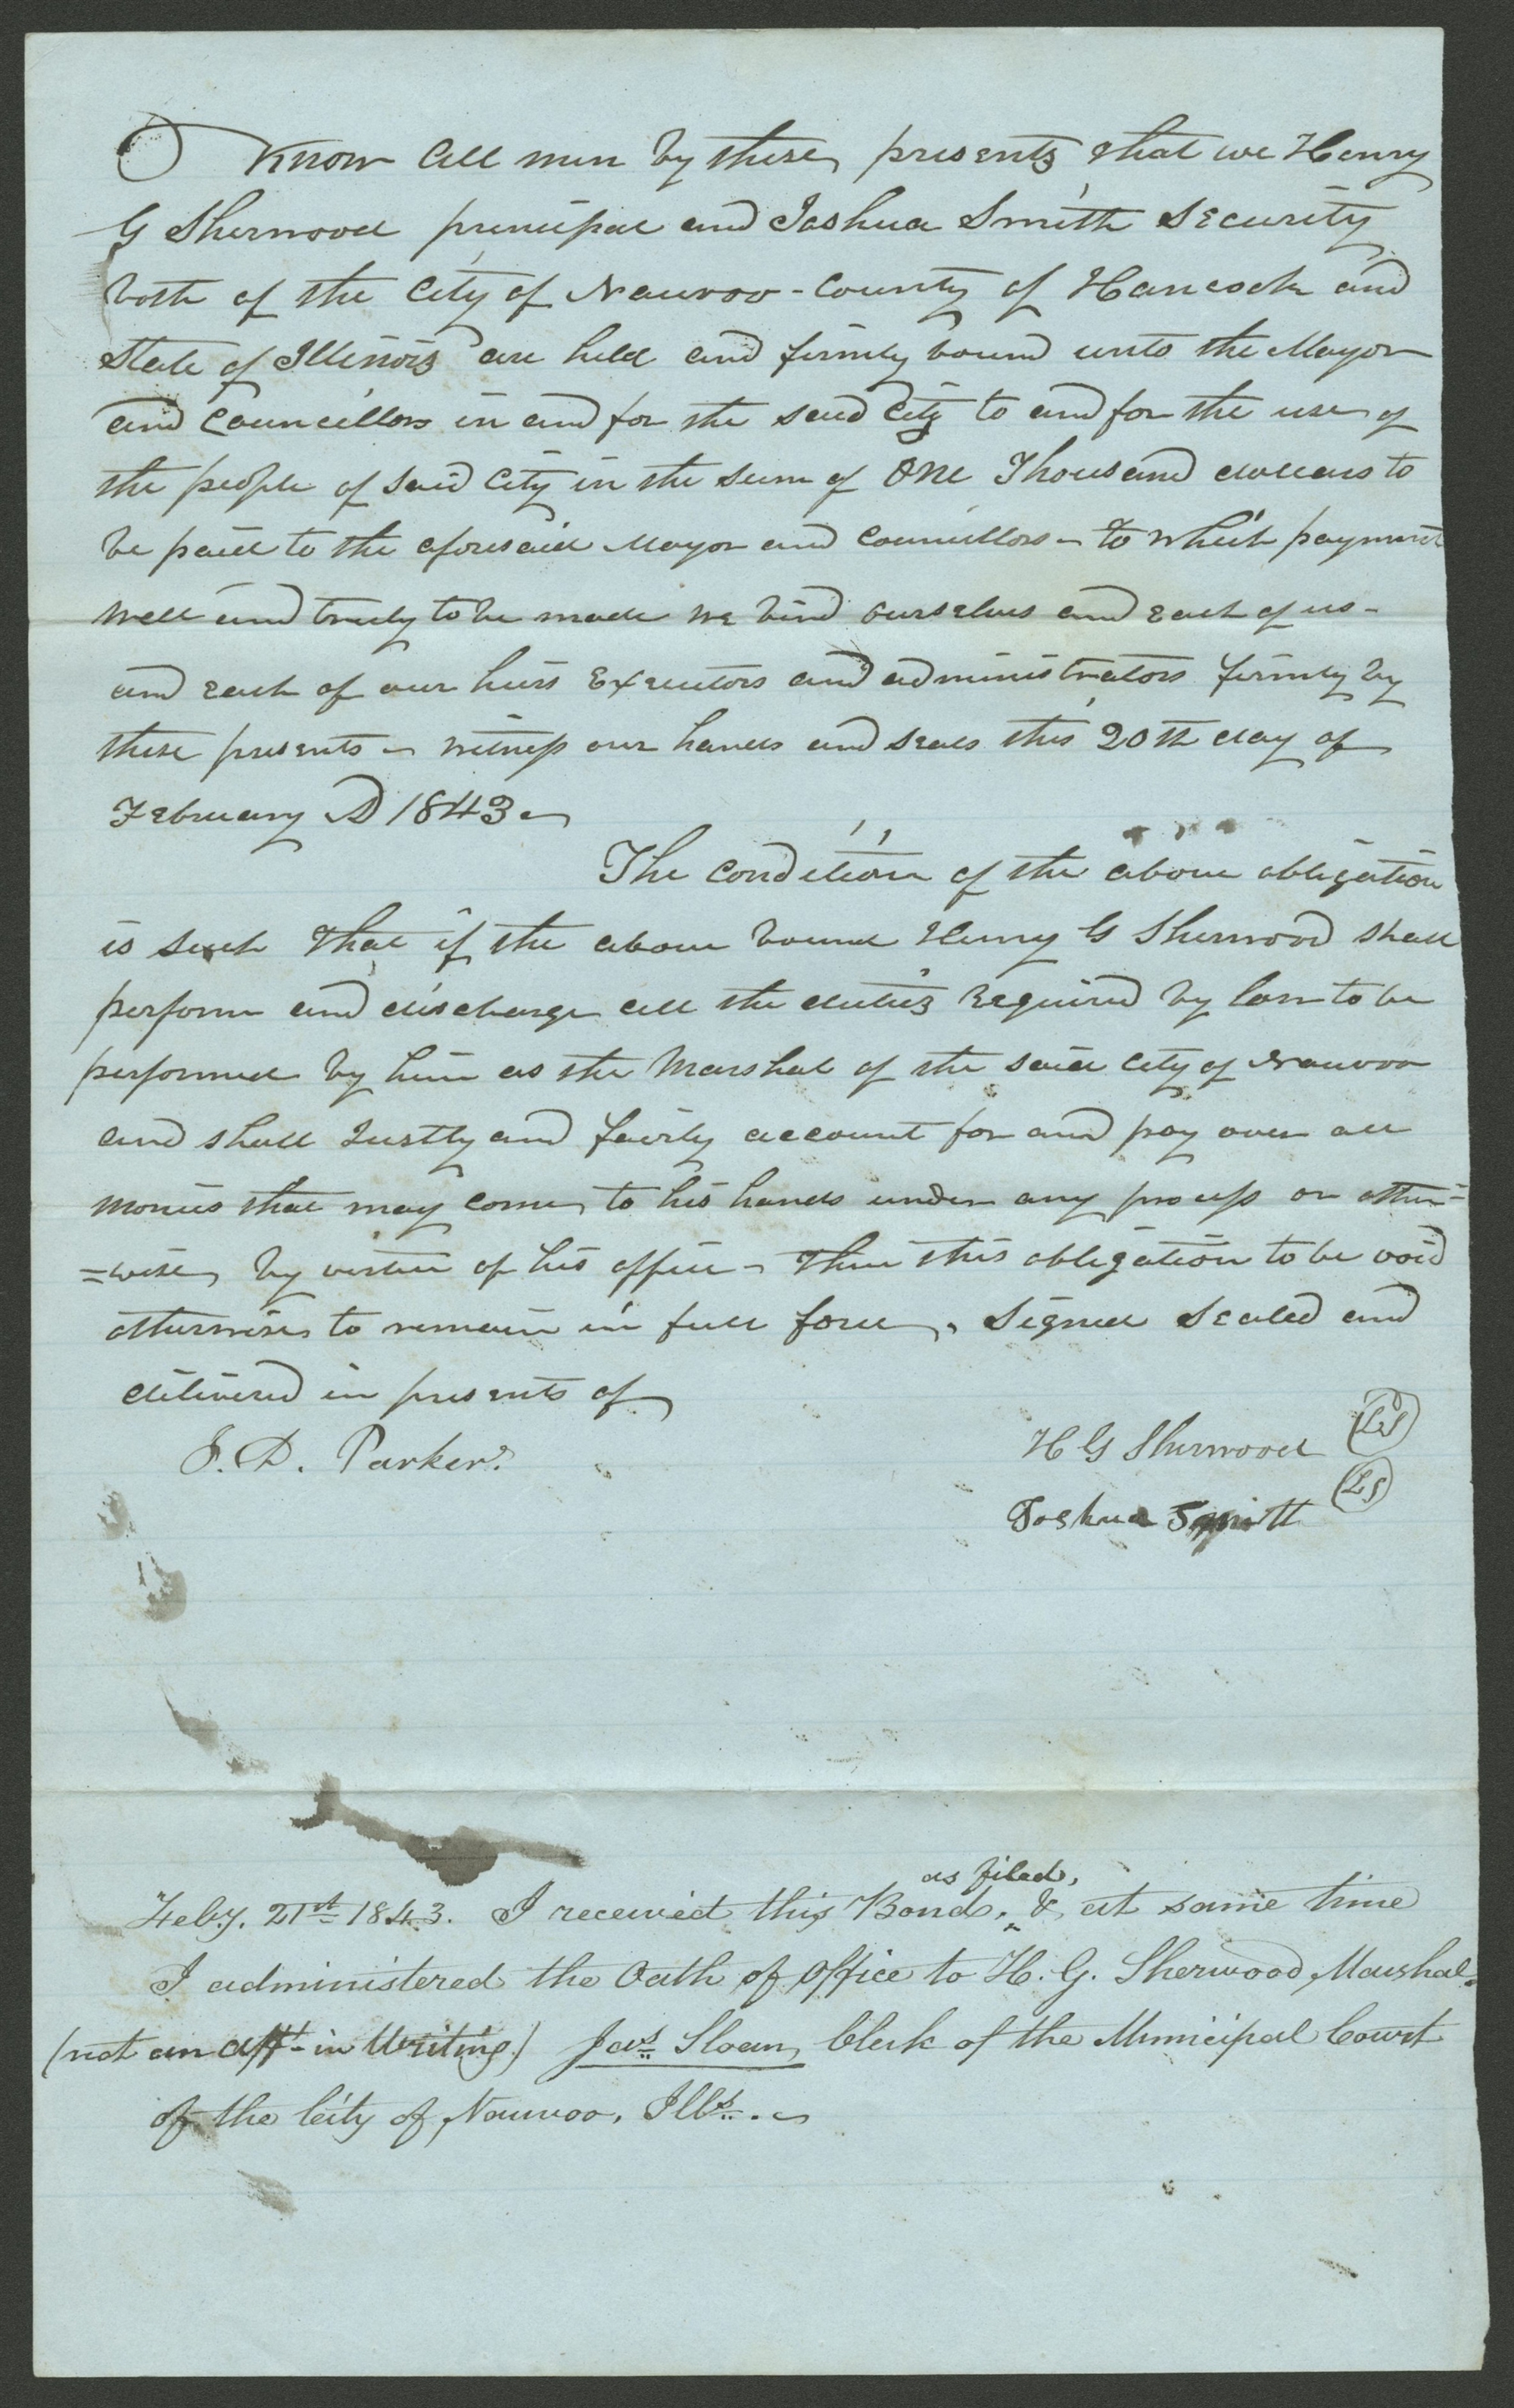 Know all men by these presents that we Henry
G Sherwood principal and Joshua Smith Security
both of the City of Nauvoo - County of Hancock and
State of Illinois are held and firmly bound unto the Mayor
and Councillors in and for the said City to and for the use of
the people of said City in the sum of One Thousand dollars to
be paid to the aforesaid Mayor and Councillors - to which payment
well and truly to be made we bind ourselves and each of us -
and each of our heirs Executors and administrators firmly by
these presents - witness our hands and seals this 20th day of
February AD 1843 -
The condition of the above obligation
is such that if the above bound Henry G Sherwood shall
perform and discharge all the duties required by law to be
performed by him as the Marshal of the said City of Nauvoo
and shall Justly and fairly account for and pay over all
monies that may come to his hands under any process or other=
=wise, by virtue of his office - Then this obligation to be void
otherwise to remain in full force, Signed Sealed and
delivered in presents of
J. D. Parker.
H G Sherwood (LS)
Joshua Smith (LS)
as filed,
Feby. 21st 1843. I received this Bond, ^ & at same time
I administered the Oath of Office to H. G. Sherwood, Marshal.
(not an afft in Writing) Jas Sloan, Clerk of the Municipal Court
of the City of Nauvoo, Ills. -